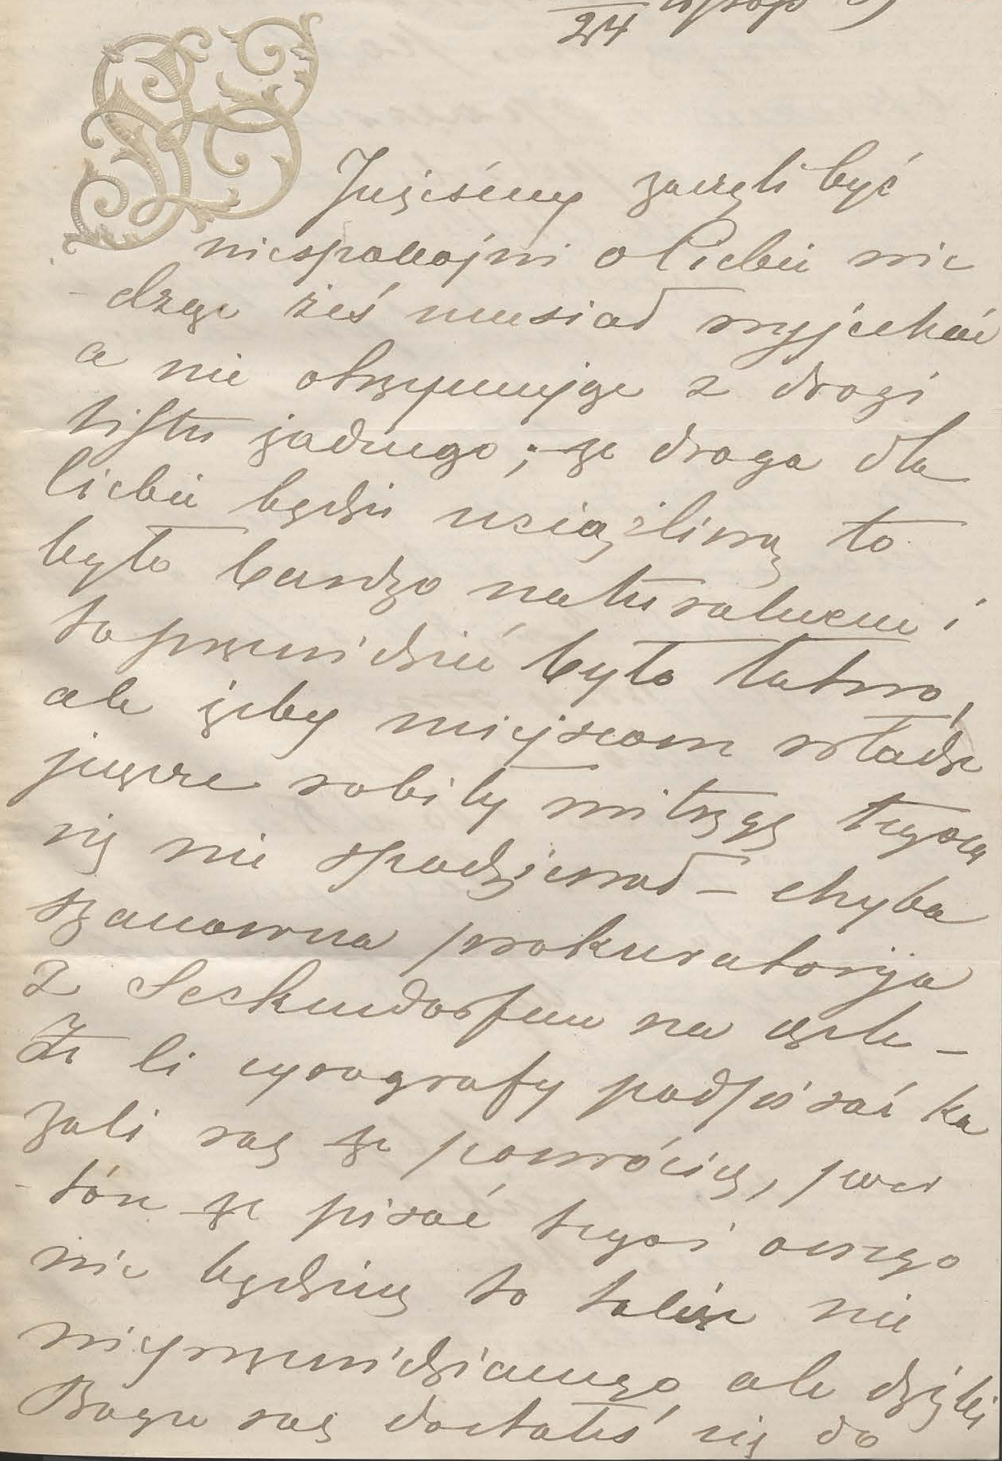 24
Jużeśmy zaczęli być
niespokojni o Ciebie wie
-dząc żeś musiał wyjechać
a nie otrzymując z drogi
listu żadnego; że droga dla
Ciebie będzie uciążliwą to
było bardzo naturalnem i
to przewidzieć było łatwo,
ale żeby miejscowe władze
jeszcze robiły mitręgę tegom
się nie spodziewał – chyba
szanowna prokuratorija
z Seckendorfem na czele –
Że Ci cyrografy podpisać ka
zali raz że powrócisz, pow
-tóre że pisać tegoi owego
nie będziesz to także nic
nieprzewidzianego, ale dzięki
Bogu raz dostałeś się do